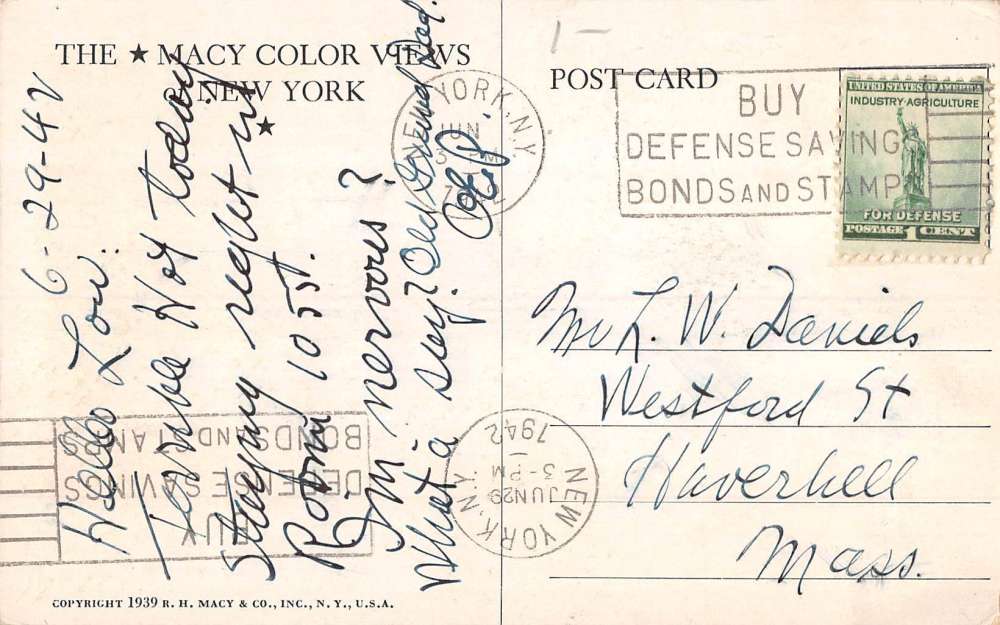 THE ★ MACY COLOR VIEWS
of NEW YORK
★
POST CARD
1-
NEW YORK, N.Y.
JUN
3 PM
BUY
DEFENSE SAVINGS
BONDS AND STAMPS
UNITED STATES OF AMERICA
INDUSTRY·AGRICULTURE
FOR DEFENSE
POSTAGE 1 CENT
6-29-42
Hello Lou:
Terrible Hot today
Staying right in
Room 1055.
I'm nervous?
What a say? Old Grand Dad.
Mr L. W. Daniels
Westford St
Haverhell
Mass.
BUY
DEFENSE SAVINGS
BONDS AND STAMPS
NEW YORK, N.Y.
JUN 29
3-PM
1942
COPYRIGHT 1939 R. H. MACY & CO., INC., N. Y., U.S.A.